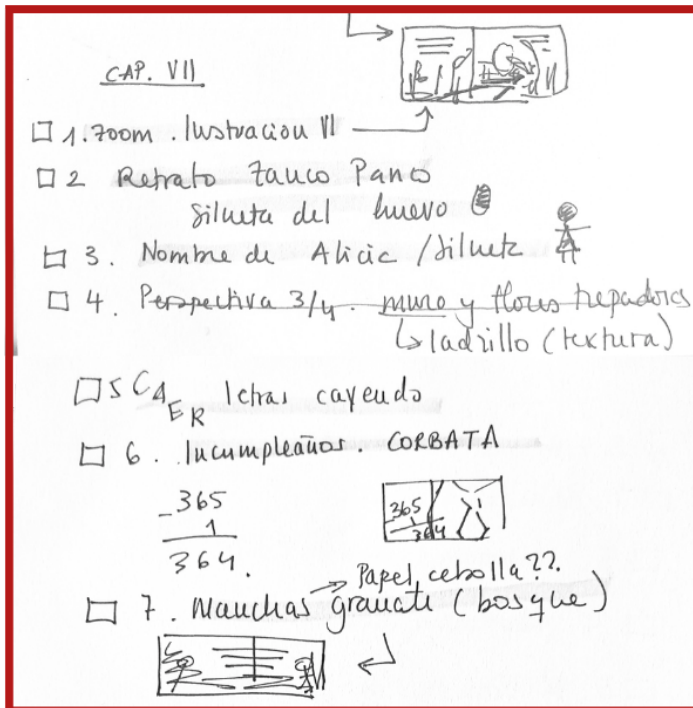 CAP. VII
1. zoom. Ilustración VI
2 Retrato Zanco Panco
silueta del huevo
3. Nombre de Alicia / silueta
4. Perspectiva 3/4. muro y flores trepadoras
ladrillo (textura)
5 CAER letras cayendo
6. Incumpleaños. CORBATA
-365
1
364.
365
1
364
Papel cebolla ??.
7. Manchas granate (bosque)